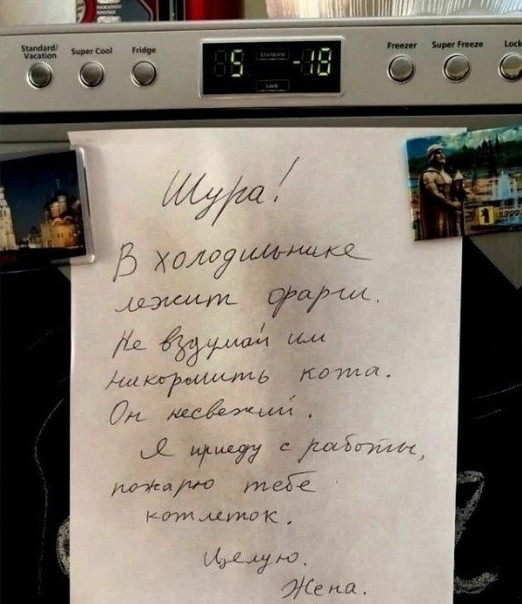 Standard/ Vacation
Super Cool
Fridge
5
Standard
-18
Lock
Freezer
Super Freeze
Lock
Шура!
В холодильнике
лежит фарш.
Не вздумай им
накормить кота.
Он несвежий.
Я приеду с работы,
пожарю тебе
котлеток.
Целую.
Жена.